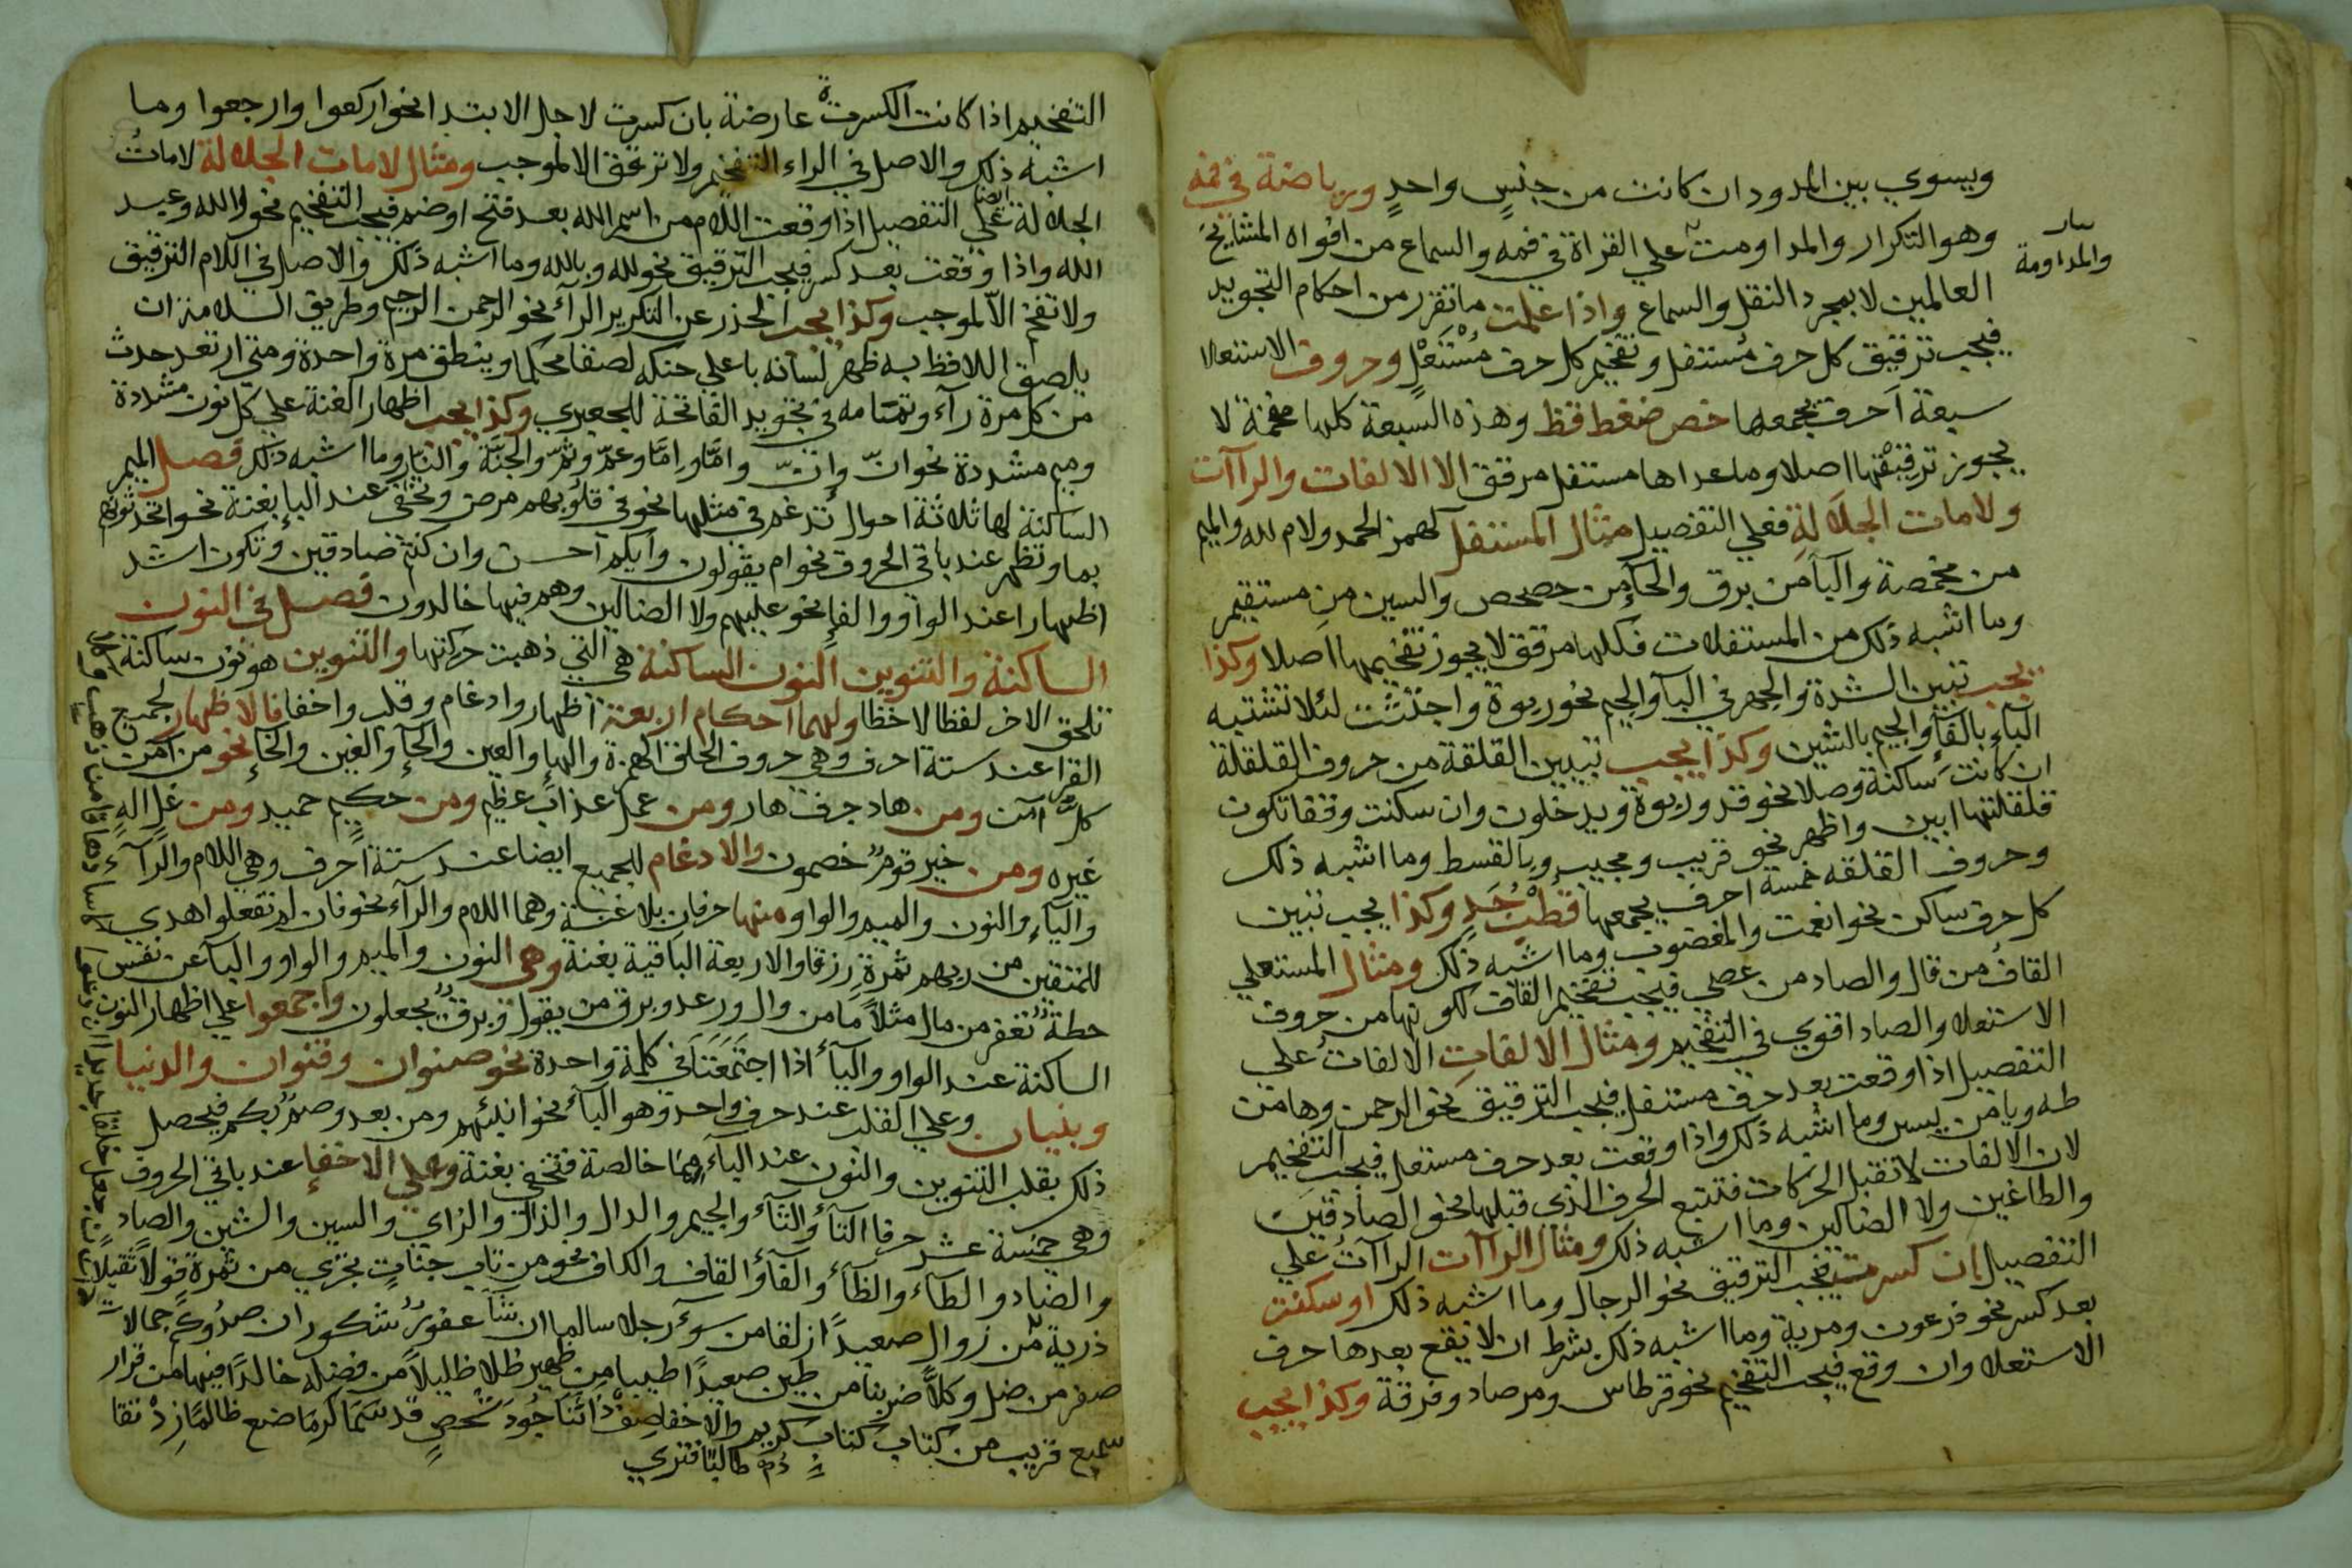 ويسوي بين المدود ان كانت من جنس واحد ورياضة في فمه
وهو التكرار والمداومت علي القراة في فمه والسماع من افواه المشايخ
والمداومة
العالمين لا بمجرد النقل والسماع واذا علمت ما تقرر من احكام التجويد
فيجب ترقيق كل حرف مُستفل وتفخيم كل حرف مُسْتَعْلٍ وحروف الاستعلا
سبعة آحرف يجمعها خص ضغط قظ وهذه السبعة كلها مفخمة لا
يجوز ترقيقها اصلا وما عداها مستفل مرقق الا الالفات والرآآت
ولامات الجلالةِ فعلي التفصيل مثال المستفل كهمز الحمد ولام لله والميم
من مخمصة والبآ من برق والحآ من حصحص والسين من مستقيم
وما اشبه ذلك من المستفلات فكلها مرقق لا يجوز تفخيمها اصلا وكذا
يجب تبين الشدة والجهر في البآ والجيم نحو ربوة واجتثت لئلا تشتبه
الباء بالفآ والجيم بالشين وكذا يجب تبيين القلقة من حروف القلقلة
ان كانت ساكنة وصلا نحو قد وربوة ويدخلون وان سكنت وقفا تكون
قلقلتها ابين واظهر نحو قريب ومجيب وبالقسط وما اشبه ذلك
وحروف القلقه خمسة احرف يجمعها قُطْبُ جَدٍ وكذا يجب تبين
كل حرف ساكن نحو انعمت والمغضوب وما اشبه ذلك ومثال المستعلي
القاف من قال والصاد من عصي فيجب تفخيم القاف لكونها من حروف
الاستعلا والصاد اقوي في التفخيم ومثال الالفات الالفات علي
التفصيل اذا وقعت بعد حرف مستفل فيجب الترقيق نحو الرحمن وها من
طه ويا من يس وما اشبه ذلك واذا وقعت بعد حرف مستعل فيجب التفخيم
لان الالفات لا تقبل الحركات فتتبع الحرف الذي قبلها نحو الصادقين
والطاغين ولا الضالين وما اشبه ذلك ومثال الراآت الراآت علي
التفصيل ان كسرت فيجب الترقيق نحو الرجال وما اشبه ذلك او سكنت
بعد كسر نحو فرعون ومرية وما اشبه ذلك بشرط ان لا يقع بعدها حرف
الاستعلا وان وقع فيجب التفخيم نحو قرطاس ومرصاد وفرقة وكذا يجب
التفخيم اذا كانت الكسرت عارضة بان كسرت لاجل الابتدا نحو اركعوا وارجعوا وما
اشبه ذلك والاصل في الراء التفخيم ولا ترقق الا لموجب ومثال لامات الجلالة لامات
الجلالة ايضا علي التفصيل اذا وقعت اللام من اسم الله بعد فتح او ضم فيجب التفخيم نحو الله وعبد
الله واذا وقعت بعد كسر فيجب الترقيق نحو لله وبالله وما اشبه ذلك والاصل في اللام الترقيق
ولا تفخم الا لموجب وكذا يجب الحذر عن التكرير الرآء نحو الرحمن الرحيم وطريق السلامة ان
يلصق اللافظ به ظهر لسانه باعلي حنكه لصقا محكما وينطق مرة واحدة ومتي ارتعد حدث
من كل مرة رآء وتمامه في تجويد الفاتحة للجعبري وكذا يجب اظهار الغنة علي كل نون مشددة
وميم مشددة نحو انّ وانّ وامّا وامّا وعمّ وثمّ والجنّة والنار وما اشبه ذلك فصل الميم
الساكنة لها ثلاثة احوال تدغم في مثلها نحو في قلوبهم مرض وتخفي عند البإ بغنة نحو اتحدثونهم
بما وتظهر عند باقي الحروف نحو ام يقولون وايكم احسن وان كنتم صادقين وتكون اشد
اظهارا عند الواو والفإ نحو عليهم ولا الضالين وهم فيها خالدون فصل في النون
الساكنة والتنوين النون الساكنة هي التي ذهبت حركتها والتنوين هو نون ساكنة
تلحق الاخر لفظا لا خطا ولهما احكام اربعة اظهار وادغام وقلب واخفا فالاظهار لجميع
القرا عند ستة احرف وهي حروف الحلق الهمزة والهإ والعين والحإ والغين والخإ نحو من آمن
كل آمن ومن هاد جرف هار ومن عمل عذاب عظيم ومن حكيم حميد ومن غل اله
غيره ومن خير قوم خصمون والادغام للجميع ايضا عند ستة آحرف وهي اللام والرآء
والياء والنون والميم والواو ومنها حرفان بلا غنة وهما اللام والرآء نحو فان لم تفعلوا هدي
للمتقين من ربهم ثمرةٍ رزقا والاربعة الباقية بغنة وهي النون والميم والواو واليا عن نفس
حطة نغفر من مال مثلا ما من وال ورعد وبرق من يقول وبرق يجعلون واجمعوا علي اظهار النون
الساكنة عند الواو واليآء اذا اجتمعتا في كلمة واحدة نحو صنوان وقنوان والدنيا
وبنيان وعلي القلب عند حرف واحد وهو البآء نحو انبئهم ومن بعد وصم بكم فيحصل
ذلك بقلب التنوين والنون عند الباء ميما خالصة فتخفي بغنة وعلي الاخفإ عند باقي الحروف
وهي خمسة عشر حرفا التآء والثآء والجيم والدال والذال والزاي والسين والشين والصاد
والضاد والطآء والظآء والفآء والقاف والكاف نحو من تاب جنات تجري من ثمرة قولا ثقيلا
ذرية من زوال صعيدًا زلقا من سوء رجلا سالما ان شآ غفور شكور ان صدوكم جمالات
صفر من ضل وكلا ضربنا من طين صعيدًا طيبا من ظهير ظلا ظليلا من فضله خالدًا فيها من قرار
سميع قريب من كتاب كتاب كريم والاخفا صِفْ ذا ثَنَا جُودَ شخصٍ قد سَمَا كرمَا ضع ظالمًا زدْ تقا
دُم طالبًا فتري